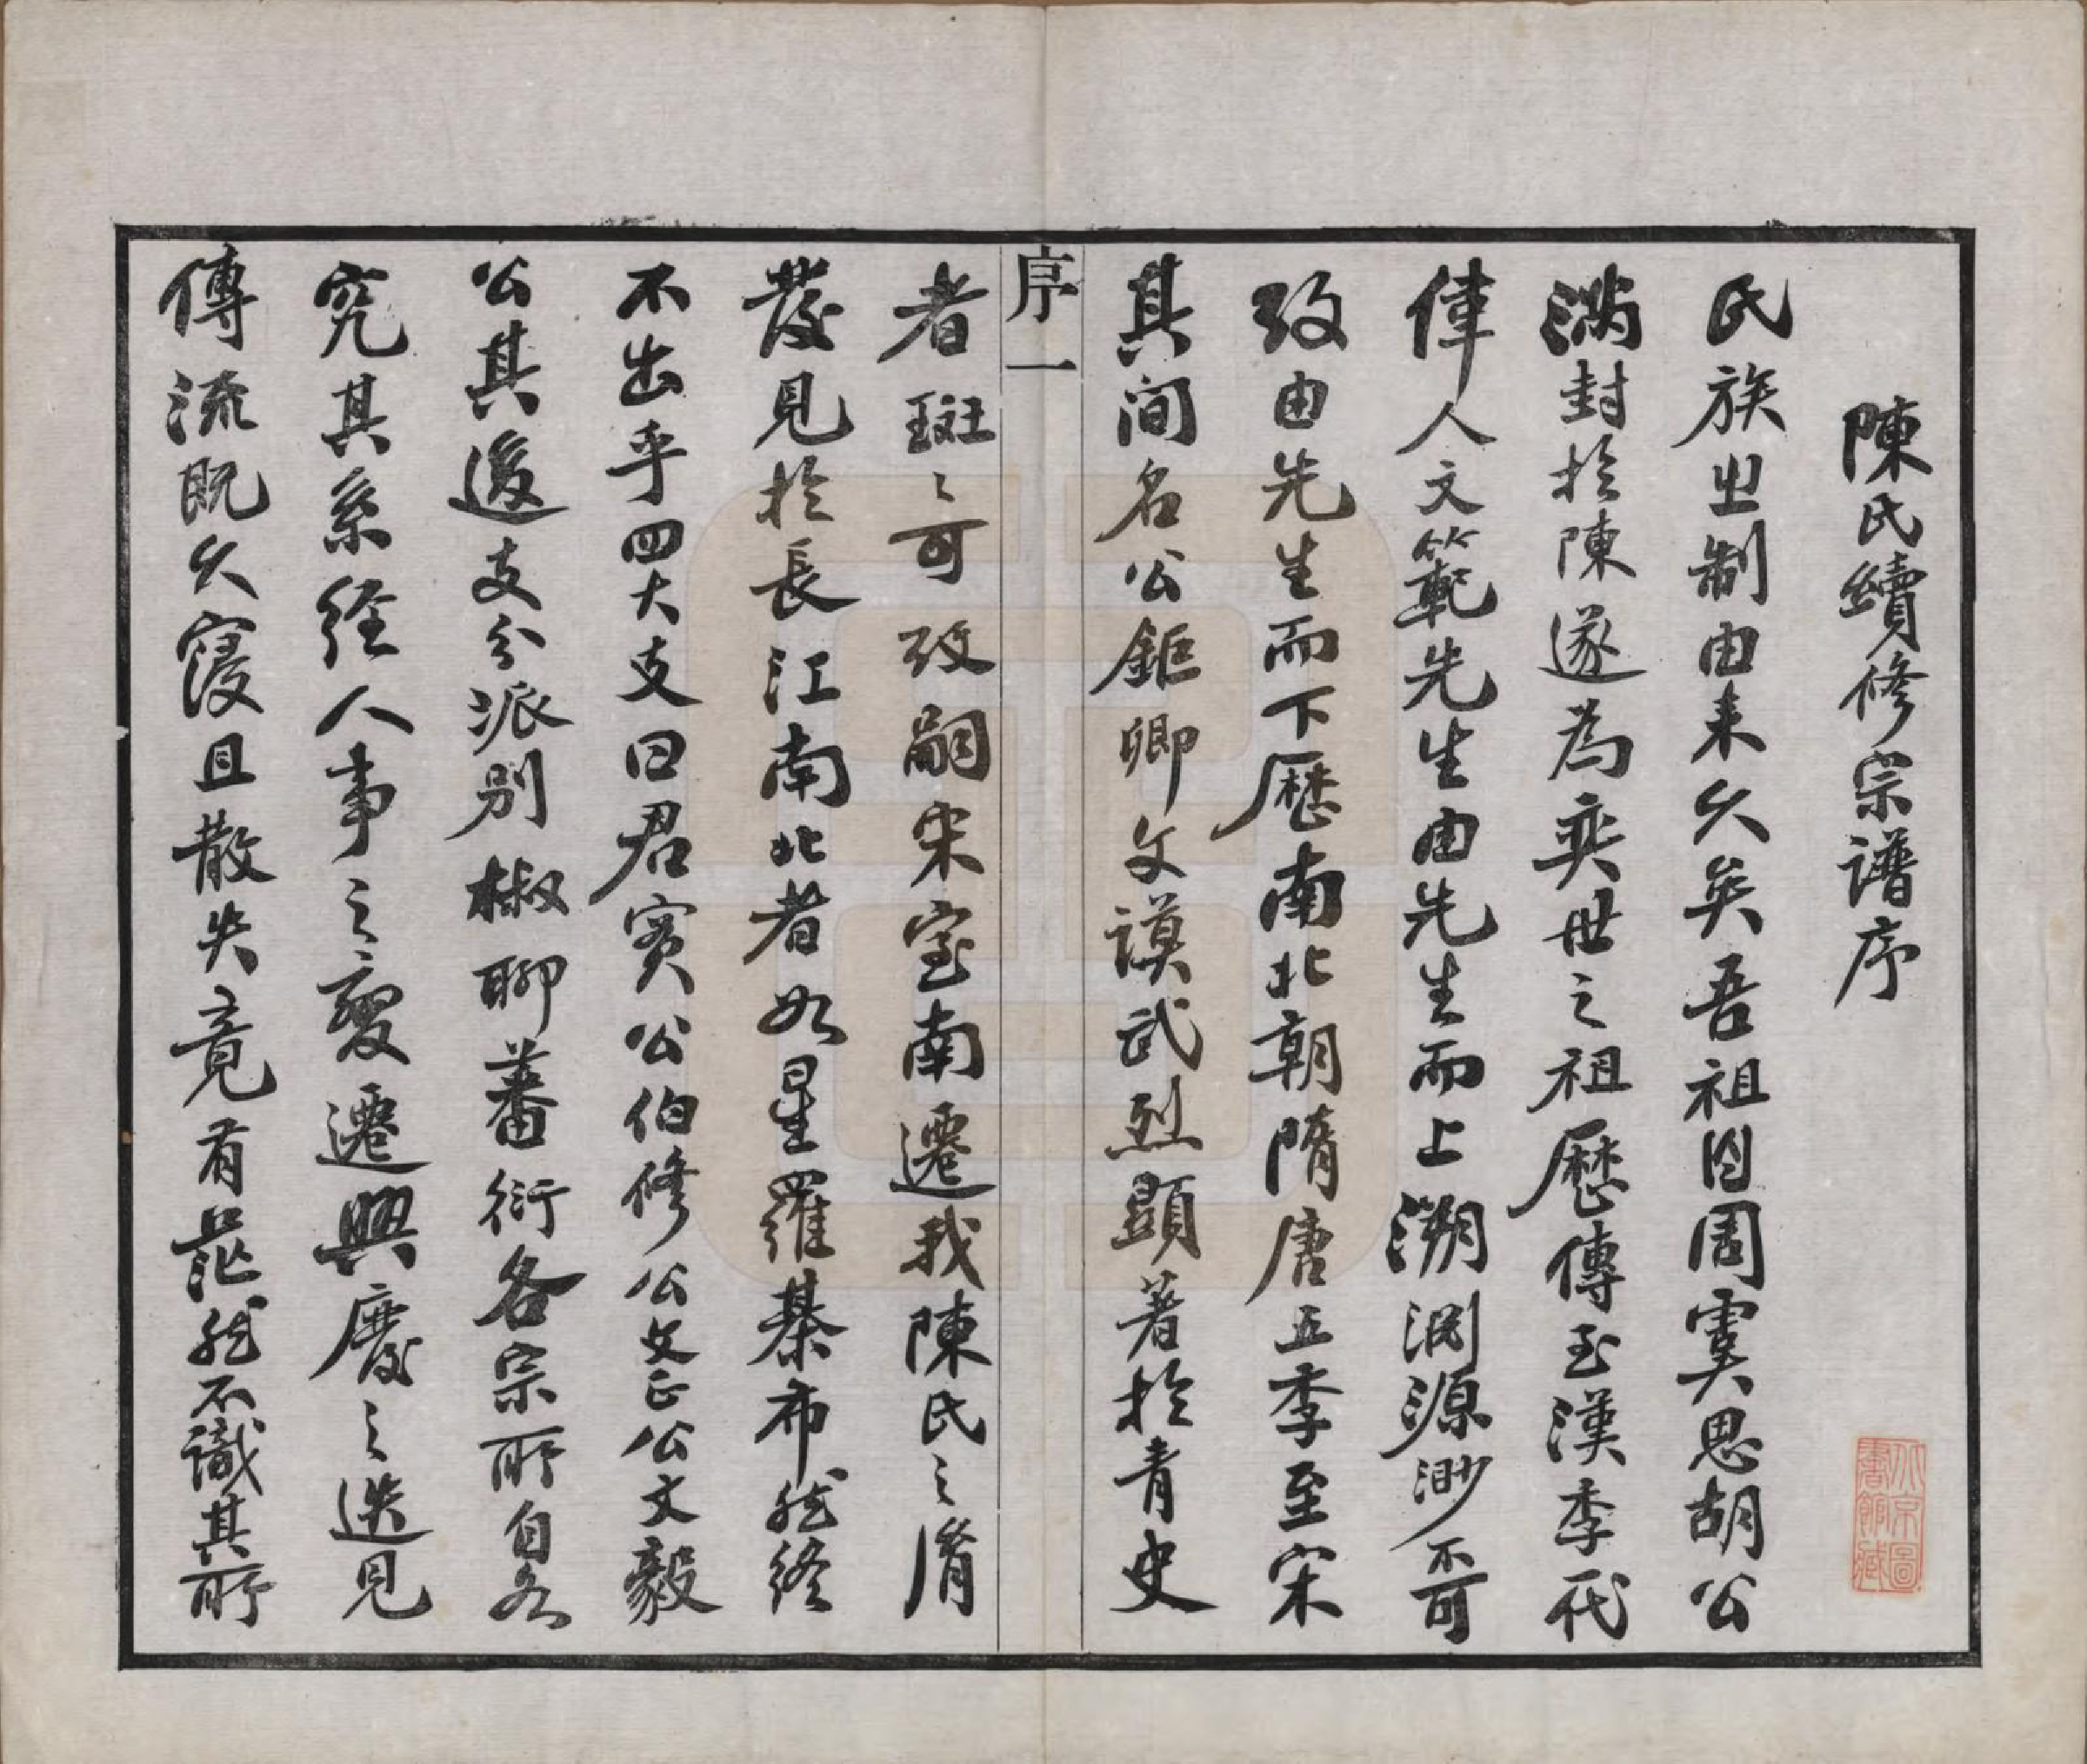 陳氏續修宗譜序
氏族之制由来久矣吾祖自周虞思胡公
滿封於陳遂為奕世之祖歷傳至漢季代
偉人文範先生由先生而上溯淵源渺不可
攷由先生而下歷南北朝隋唐五季至宋
其间名公鉅卿文謨武烈顯著於青史
序一
者斑〻可攷嗣宋室南遷我陳氏之胥
發見於長江南北者如星羅棊布然終
不出乎四大支曰君實公伯修公文正公文毅
公其後支分派別椒聊蕃衍各宗所自各
究其系經人事之變遷興廢之迭見
傳流既久寖且散失竟有茫然不識其所
北京圖書館藏